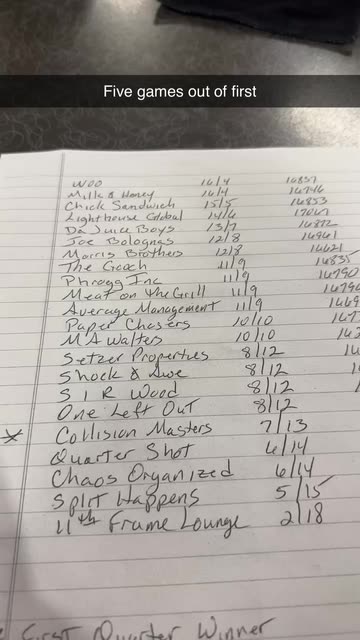 Five games out of first
Woo 16/4 16857
Milk & Honey 16/4 16746
Chick Sandwich 15/5 16853
Lighthouse Global 14/6 17067
Da Juice Boys 13/7 16872
Joe Bolognas 12/8 16961
Morris Brothers 12/8 16621
The Gooch 11/9 16835
Phragg Inc 11/9 16790
Meat on the Grill 11/9 1679
Average Management 11/9 1669
Paper Chasers 10/10 1677
MA Walters 10/10 162
Setzer Properties 8/12 16
Shock & Awe 8/12 1
S I R Wood 8/12
One Left Out 8/12
* Collision Masters 7/13
Quarter Shot 6/14
Chaos Organized 6/14
Split Happens 5/15
11th Frame Lounge 2/18
First Quarter Winner